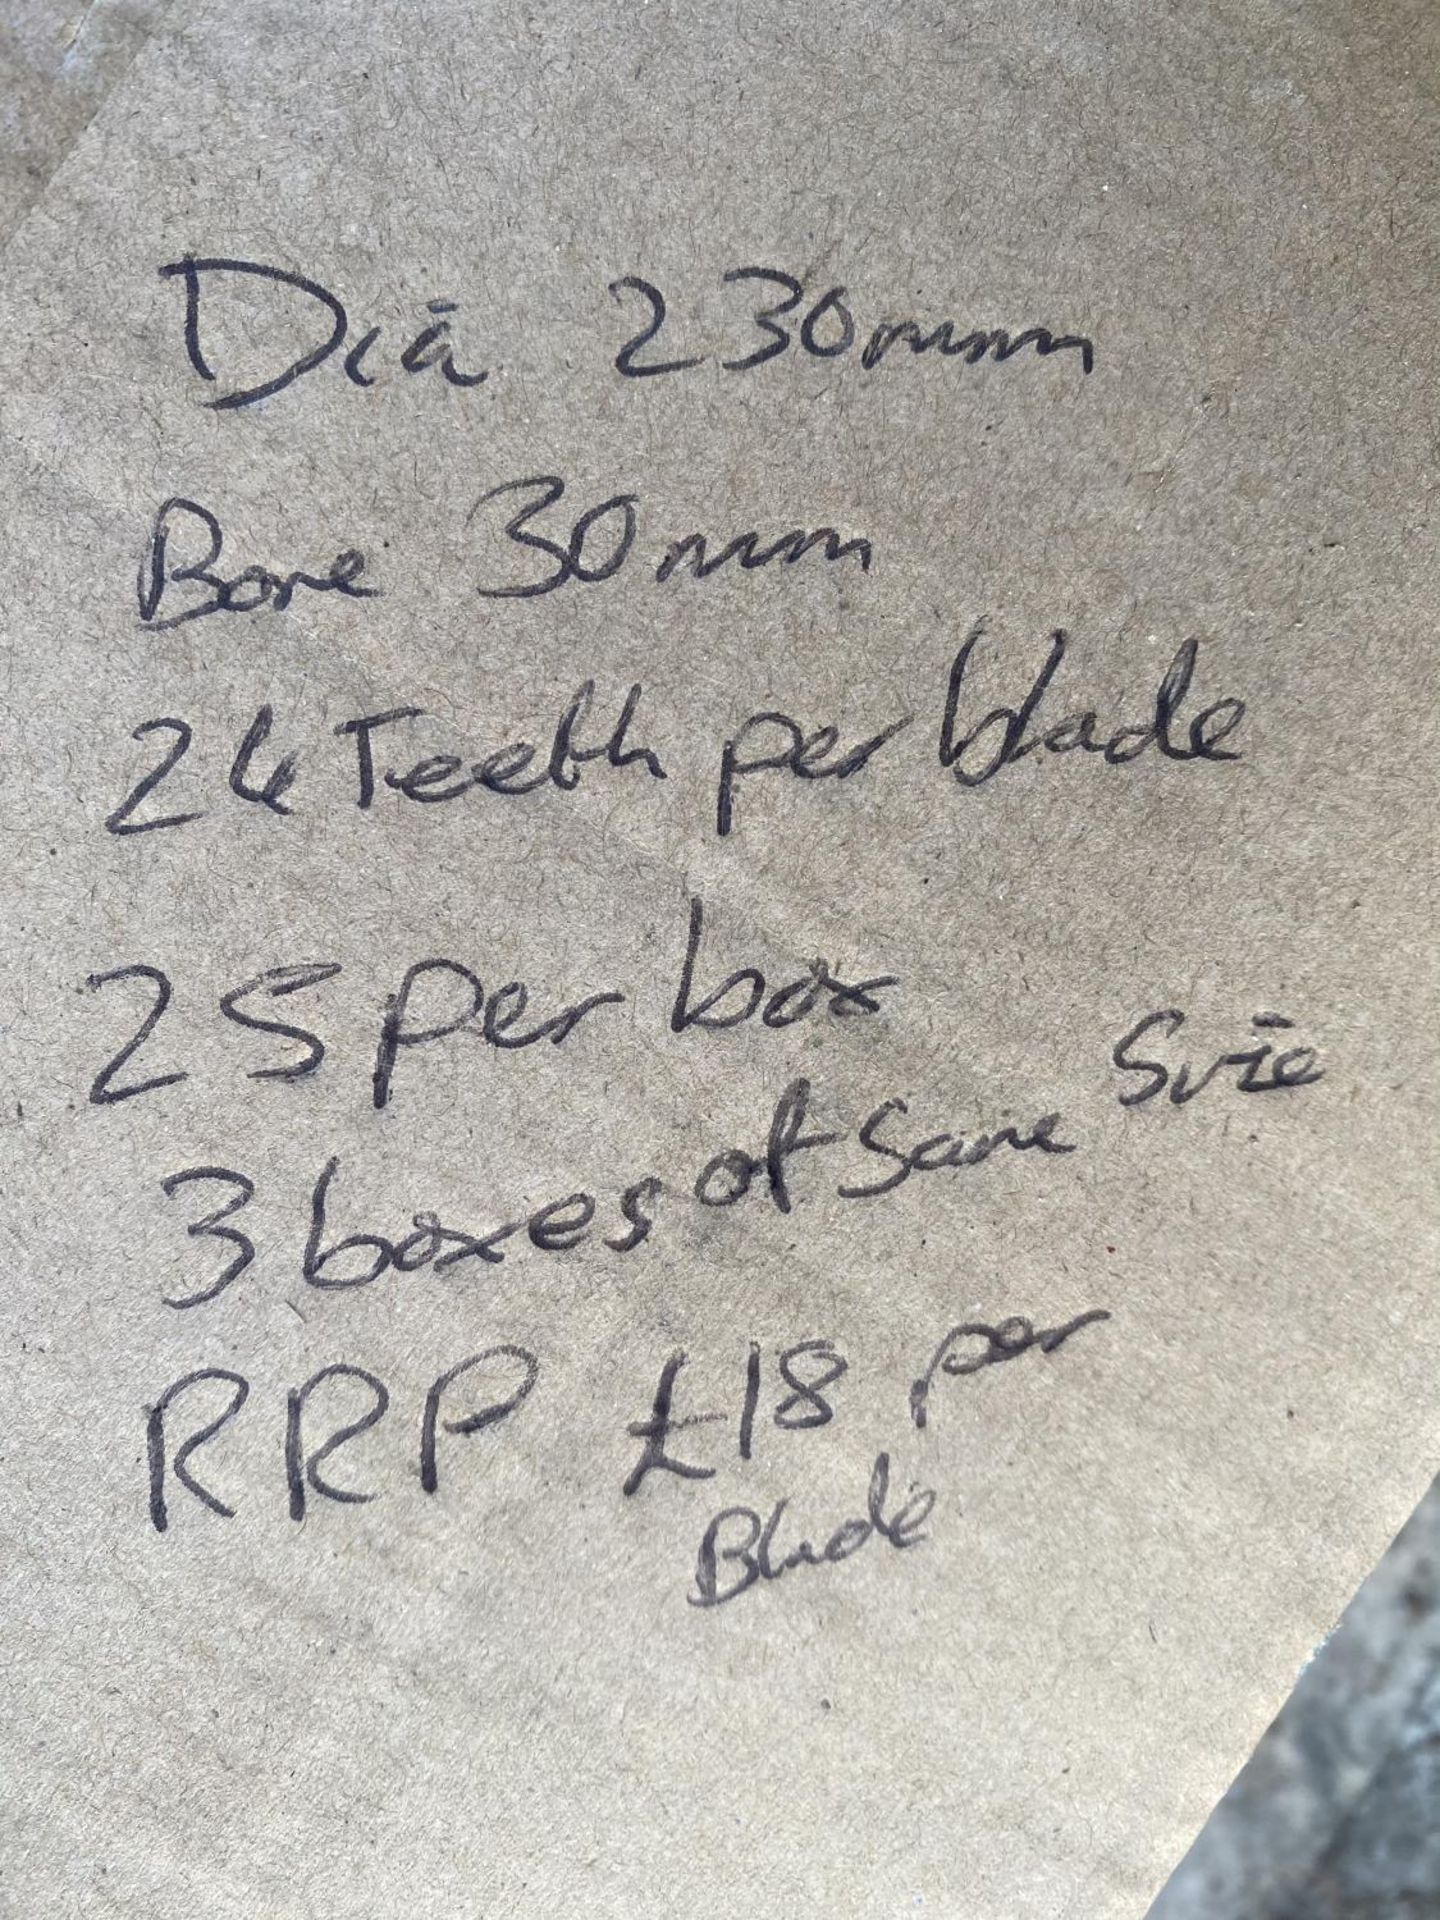 Dia 230mm
Bore 30mm
24 Teeth per blade
25 per box
3 boxes of same Size
RRP £18 per
Blade